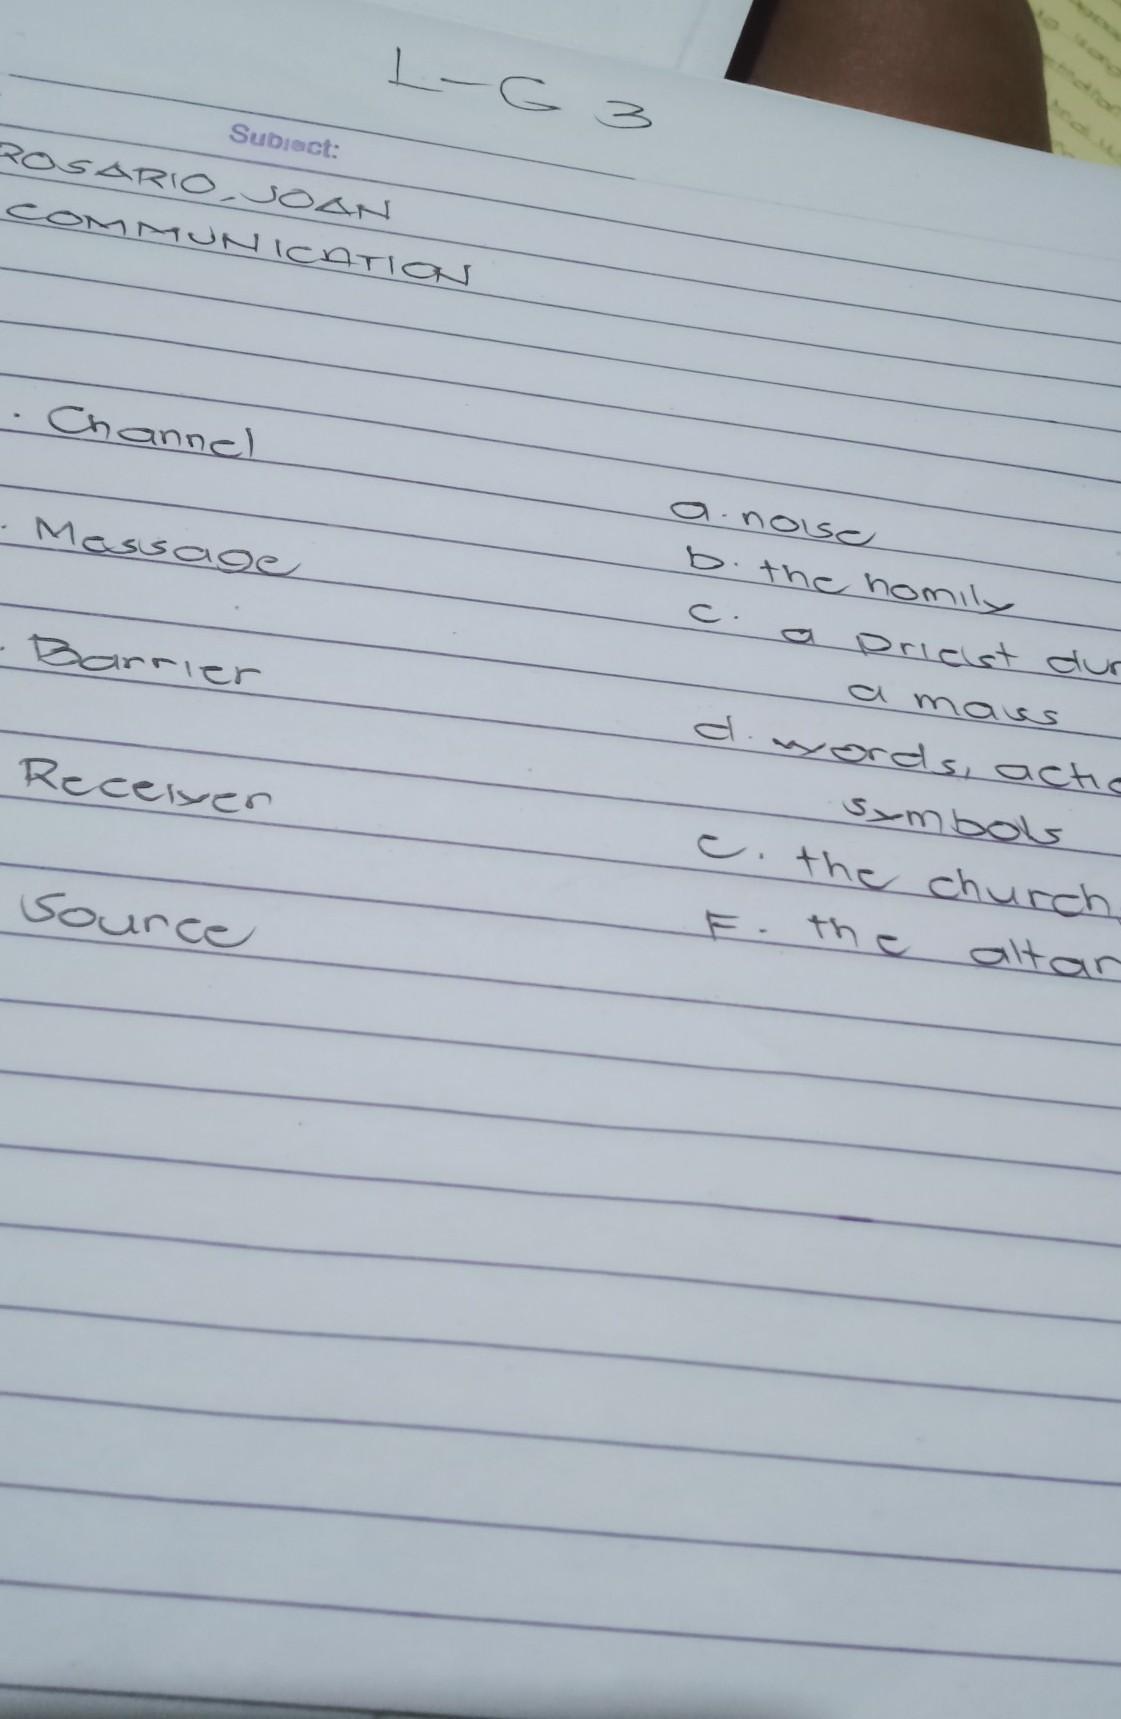 L-G 3
Subject:
ROSARIO, JOAN
COMMUNICATION
. Channel
. Message
. Barrier
Receiver
Source
a. noise
b. the homily
c. a priest
a mass
d. words,
symbols
e. the church
F. the altar